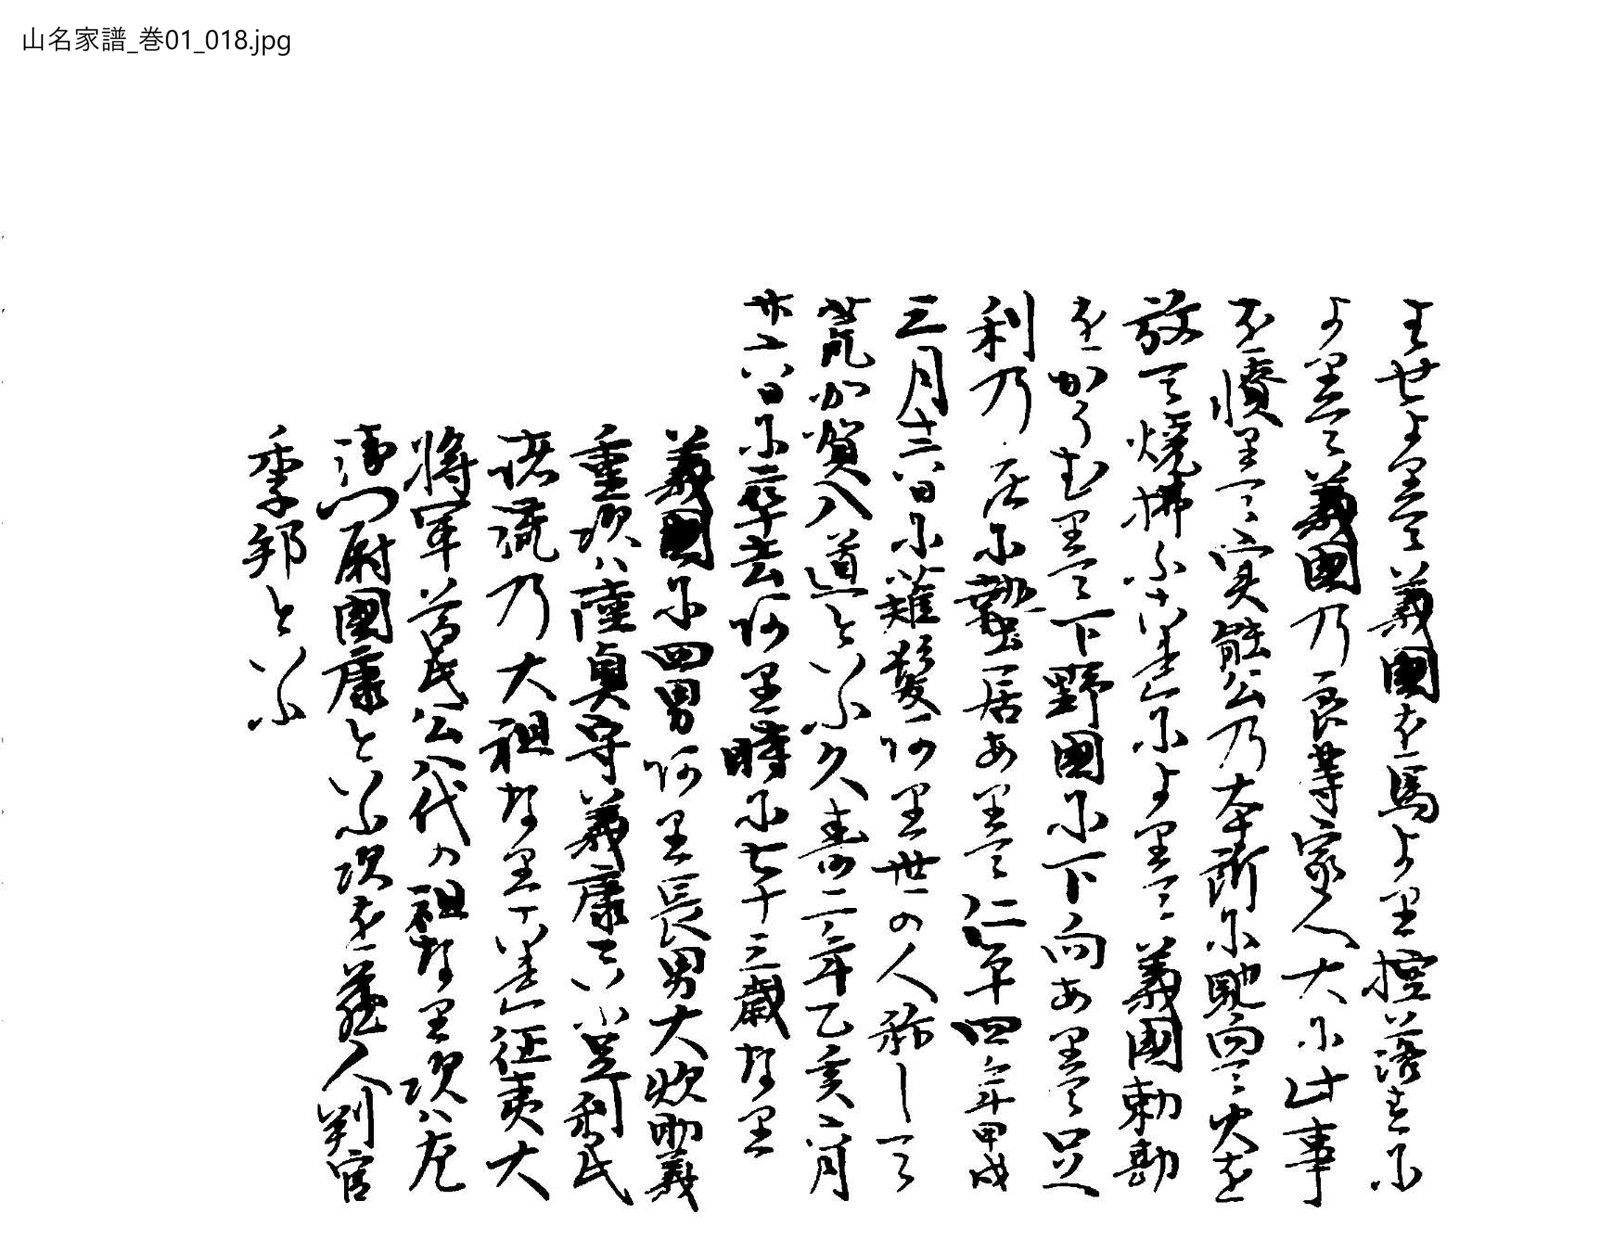 山名家譜_巻01_018.jpg
よりて義國を馬より控落すに
よりて義國乃良等家人大に此事
を憤りて実能公乃本所に馳向て火を
放て焼拂ふによりて義國勅勘
をかうむりて下野國に下向ありて足
利乃居に蟄居ありて仁平四年甲戌
三月十六日に薙髪ありて世の人称して
荒加賀入道といふ久寿二年乙亥二月
廿六日に卒去あり時に七十三歳なり
義國に四男あり長男大炊助義
重次ハ陸奥守義康是ハ足利氏
諸流乃大祖なり征夷大
将軍尊氏公八代の祖なり次ハ左
衛門尉國康といふ次を蔵人判官
季邦といふ